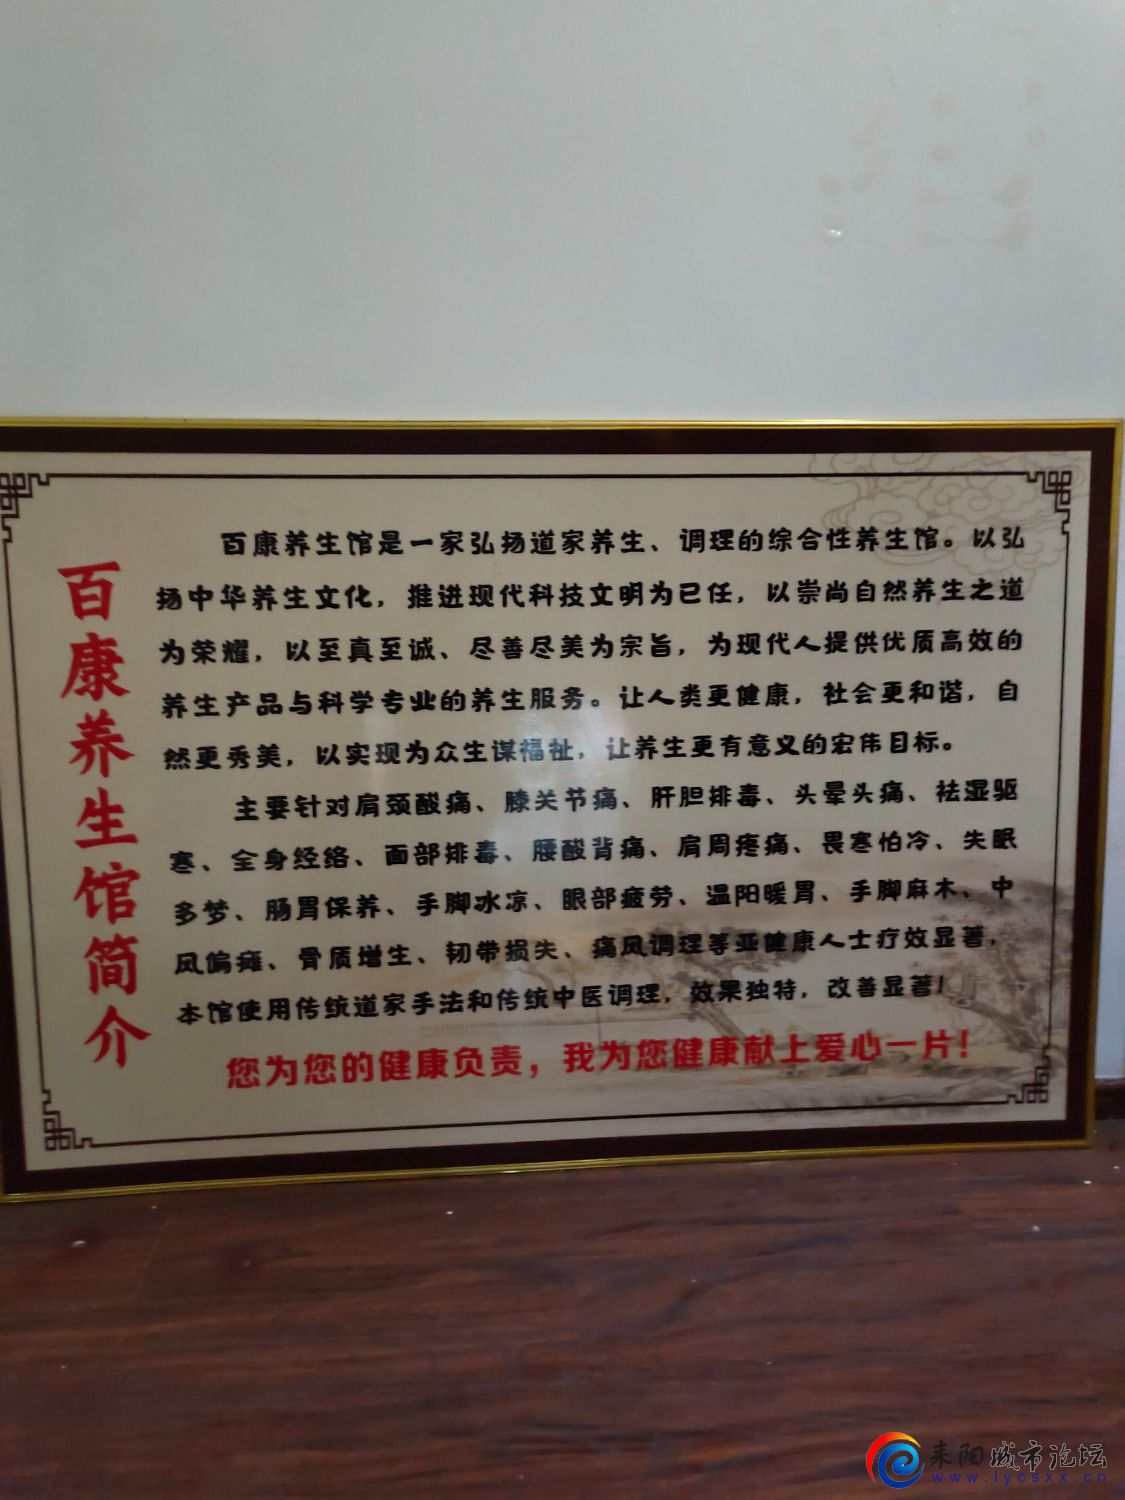 百康养生馆简介
百康养生馆是一家弘扬道家养生、调理的综合性养生馆。以弘
扬中华养生文化，推进现代科技文明为已任，以崇尚自然养生之道
为荣耀，以至真至诚、尽善尽美为宗旨，为现代人提供优质高效的
养生产品与科学专业的养生服务。让人类更健康，社会更和谐，自
然更秀美，以实现为众生谋福祉，让养生更有意义的宏伟目标。
主要针对肩颈酸痛、膝关节痛、肝胆排毒、头晕头痛、祛湿驱
寒、全身经络、面部排毒、腰酸背痛、肩周疼痛、畏寒怕冷、失眠
多梦、肠胃保养、手脚冰凉、眼部疲劳、温阳暖胃、手脚麻木、中
风偏瘫、骨质增生、韧带损失、痛风调理等亚健康人士疗效显著，
本馆使用传统道家手法和传统中医调理，效果独特，改善显著！
您为您的健康负责，我为您健康献上爱心一片！
耒阳城市论坛
www.lycsxx.cn